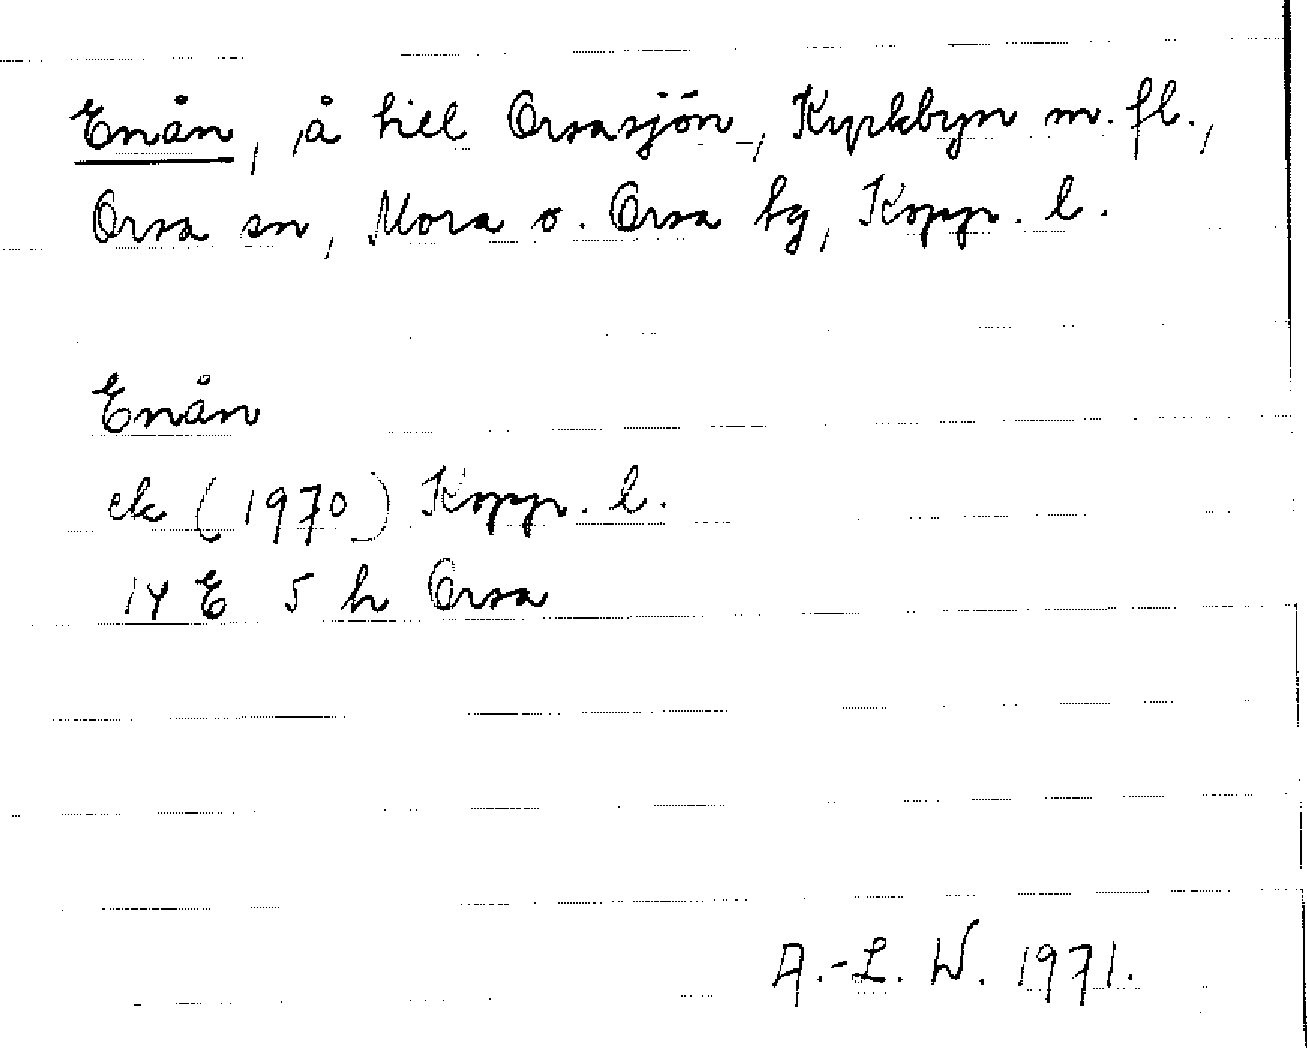 Enån, å till Orsasjön, Kyrkbyn m. fl.,
Orsa sn, Mora o. Orsa tg, Kopp. l.
Enån
ek (1970) Kopp. l.
14 E 5 h Orsa
A.-L. W. 1971.